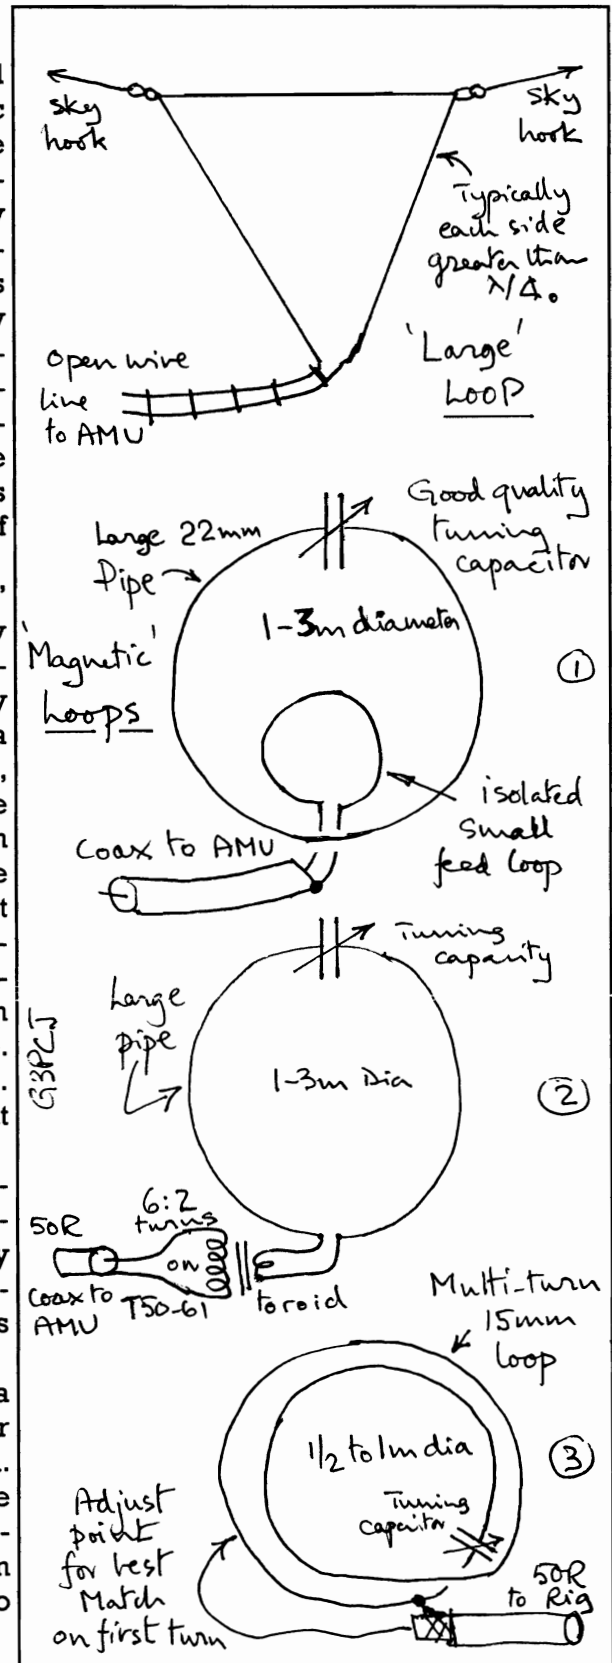 sky
hook
sky
hook
Typically
each side
greater than
λ/4.
'Large'
Loop
Open wire
line
to AMU
Good quality
tuning
capacitor
Large 22mm
Pipe
1-3m diameter
'Magnetic'
Loops
1
isolated
small
feed loop
Coax to AMU
Tuning
capacity
Large
pipe
G3PCJ
1-3m Dia
2
6:2
turns
50R
on
Coax to
AMU
T50-61
toroid
Multi-turn
15mm
Loop
1/2 to 1m dia
3
Tuning
Capacitor
Adjust
point
for best
Match
on first turn
50R
to Rig